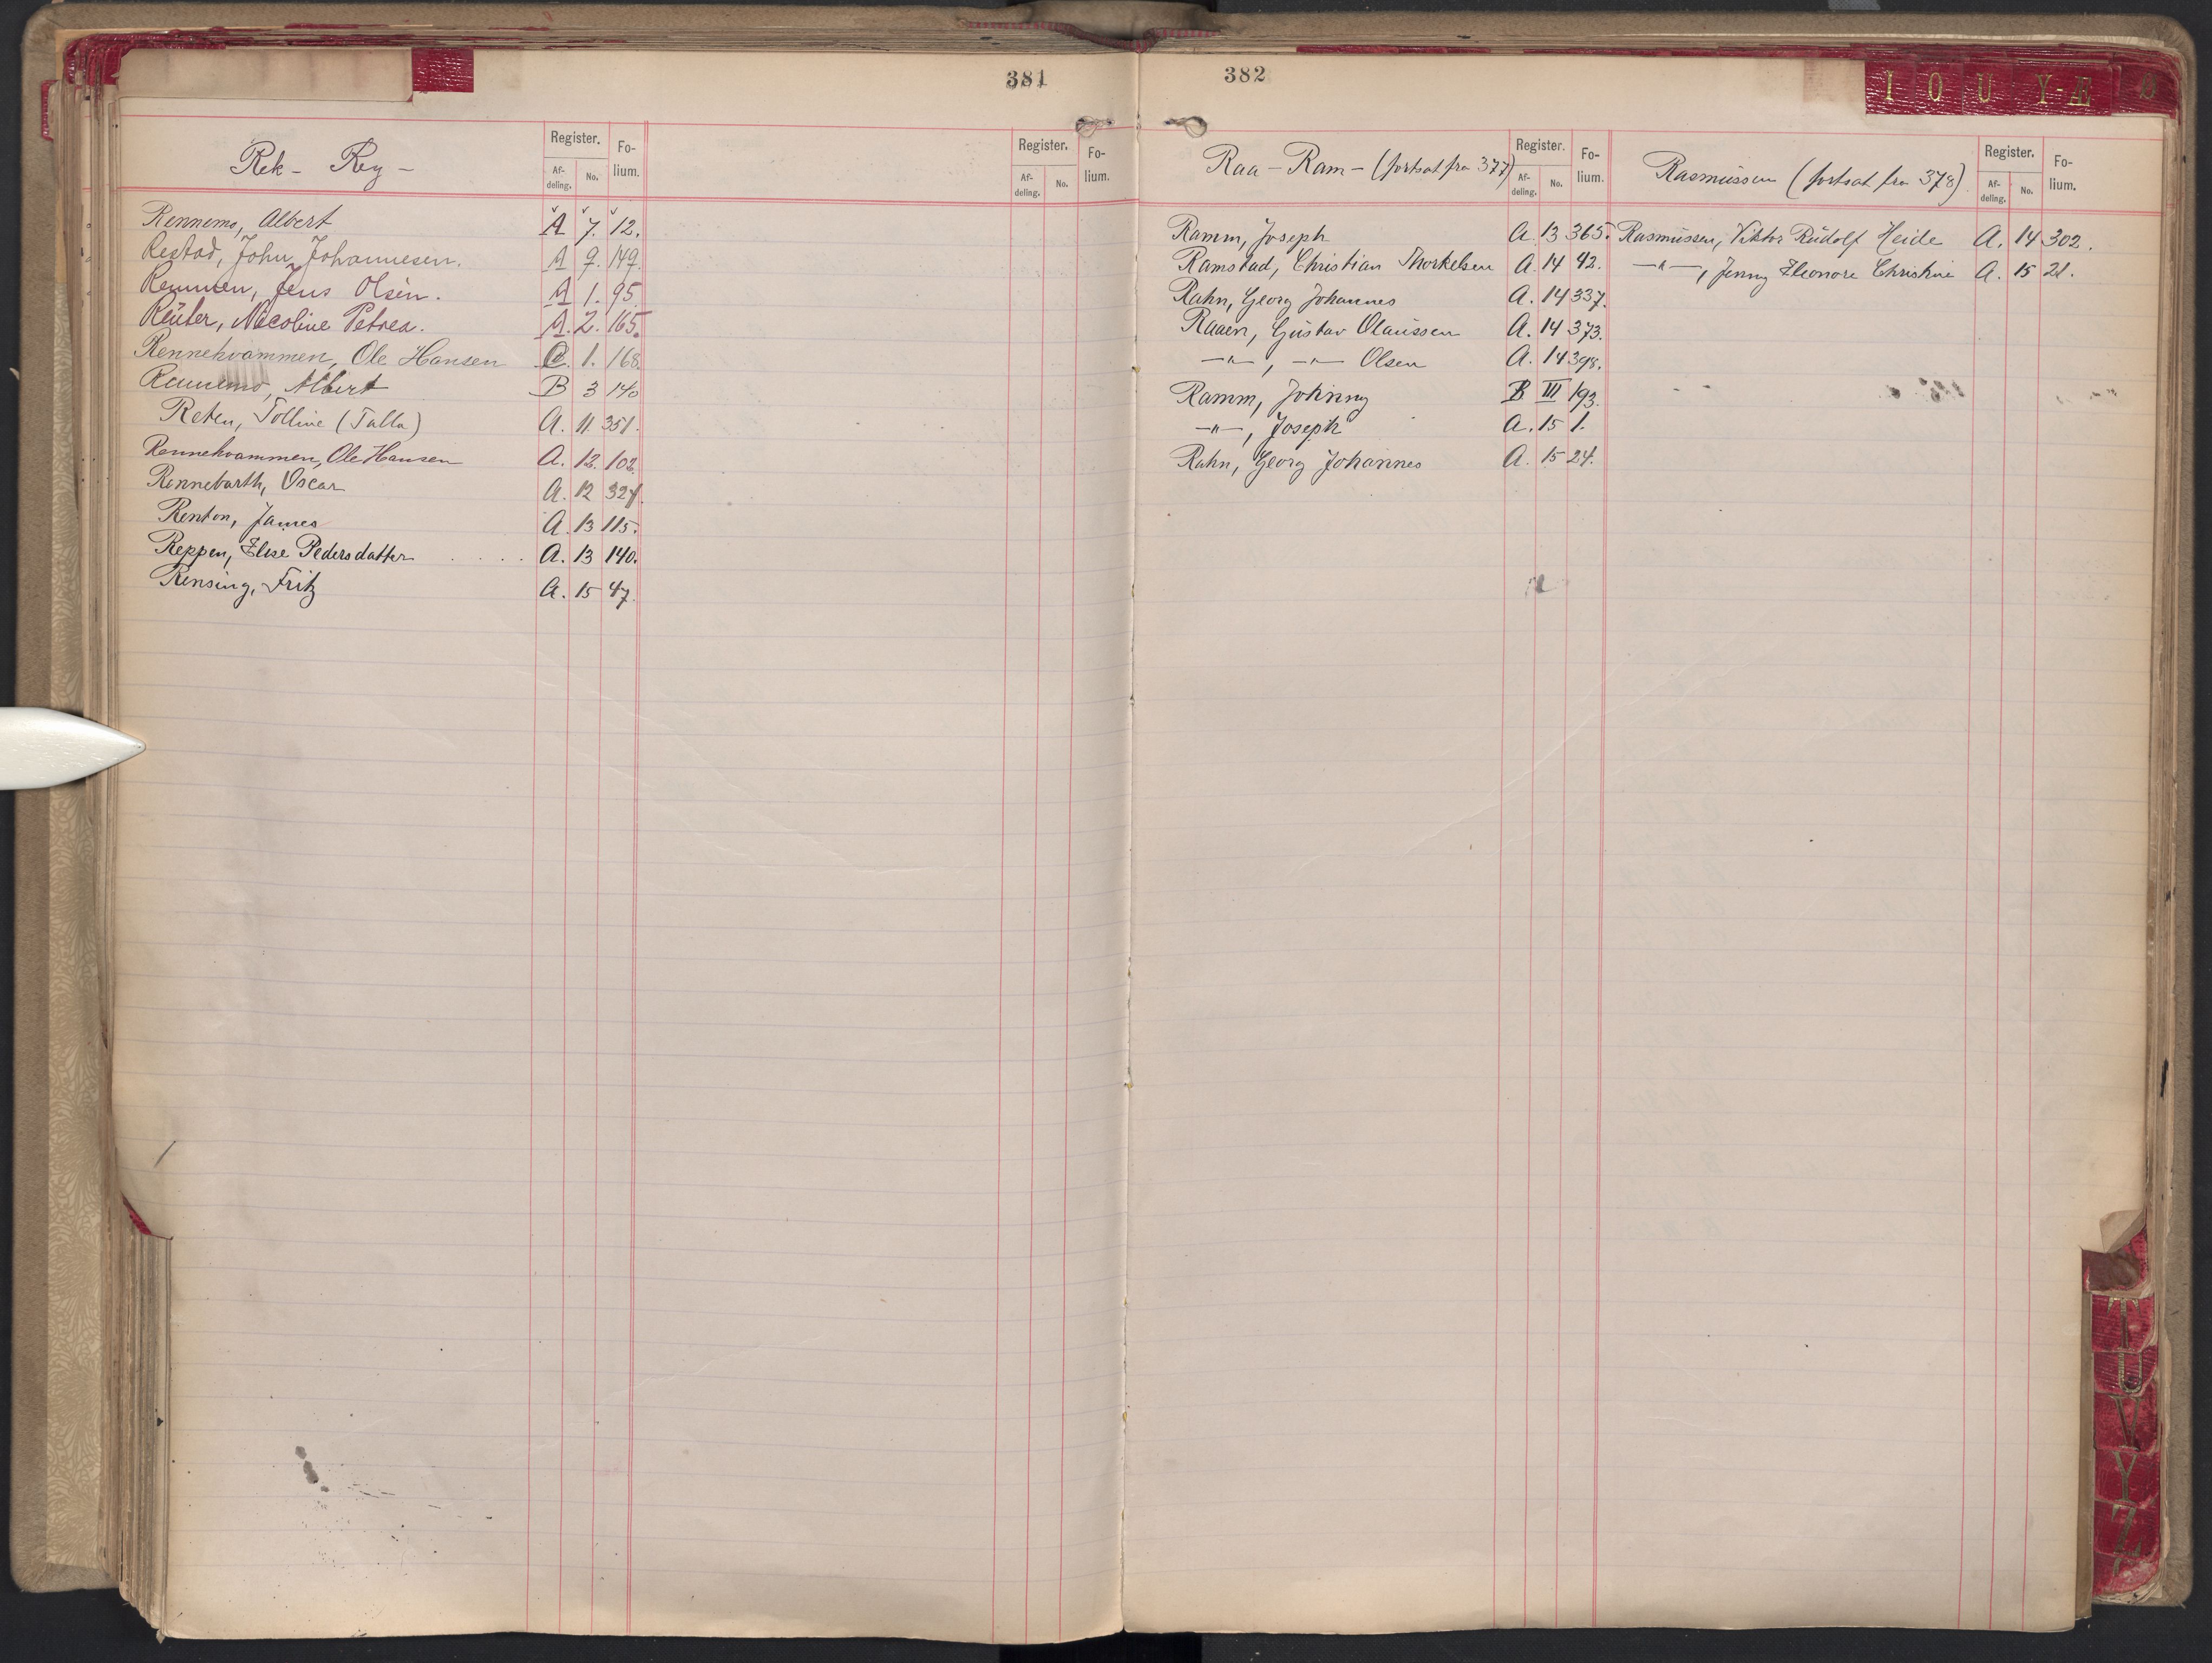 381
Rek - Rey -
Register.
Fo-
lium.
Af-
deling.
No.
Register.
Fo-
lium.
Af-
deling.
No.
Rennemo, Albert A 7. 12.
Restad, John Johannesen. A 9. 149.
Remmen, Jens Olsen. A 1. 95.
Reüter, Nicoline Petrea. A. 2. 165.
Rennehvammen, Ole Hansen C. 1. 168.
Rennemo, Albert B 3 140
Reten, Tolline (Talla) A. 11. 351.
Rennehvammen, Ole Hansen A. 12. 102.
Rennebarth, Oscar A. 12 327.
Renton, James A. 13 115.
Reppen, Elise Pedersdatter . . . . A. 13 140.
Rensing, Fritz A. 15 47.
382
I O U Y-Æ Ø
Raa - Ram - (fortsat fra 377)
Register.
Fo-
lium.
Af-
deling.
No.
Rasmüssen (fortsat fra 378).
Register.
Fo-
lium.
Af-
deling.
No.
Ramm, Joseph A. 13 365.
Ramstad, Christian Thorkelsen A. 14 42.
Rahn, Georg Johannes A. 14 337.
Raaen, Güstav Olaüssen A. 14 373.
-"-, -"- Olsen A. 14 398.
Ramm, Johnny B III 193.
-"-, Joseph A. 15 1.
Rahn, Georg Johannes A. 15 24.
Rasmüssen, Viktor Rüdolf Heide A. 14 302.
-"-, Jenny Eleonore Christine A. 15 21.
T
U
V
Y
Z